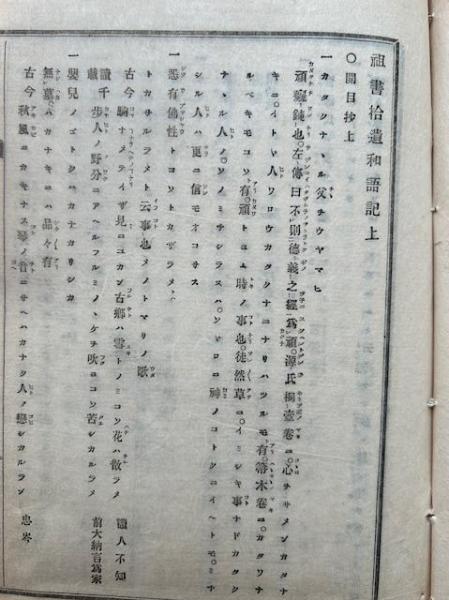 祖書拾遺和語記上
〇開目抄上
一カタクナヽル父チウヤマヒ
頑癡鈍也。左傳曰不則德義之經爲頑。源氏桐壺卷ニ。心チサメンカタナ
キニ。イトヾ人ワロウカタクナニナリハツルモ有。箒木卷ニ。カタワナ
ルベキモコソ有。頑トハユ時ノ事也。徒然草ニ。イミシキ事ナドカタクナ
ナヽル人ノ。ソノミチシラヌハ。ソヾロニ神ノコトクニイヘトモ。ミチ
シル人ハ更ニ信モオコサス
一悉有佛性トコソトカザラメト
トカサルラメト云事也メノトマリノ歌
古今 駒ナメテイザ見ニユカン古鄉ハ雪トノミコソ花ハ散ラメ 讀人不知
載千 步人ノ野分ニアヘルフルミノヽケヲ吹ニコソ苦シカルラメ 前大納言爲家
一嬰兒ノヲトクハカナカリシカ
無墓。ハカナキニハ品々有
古今 秋風ニカキナス琴ノ音ニサヘハカナク人ノ戀シカルラン 忠岑